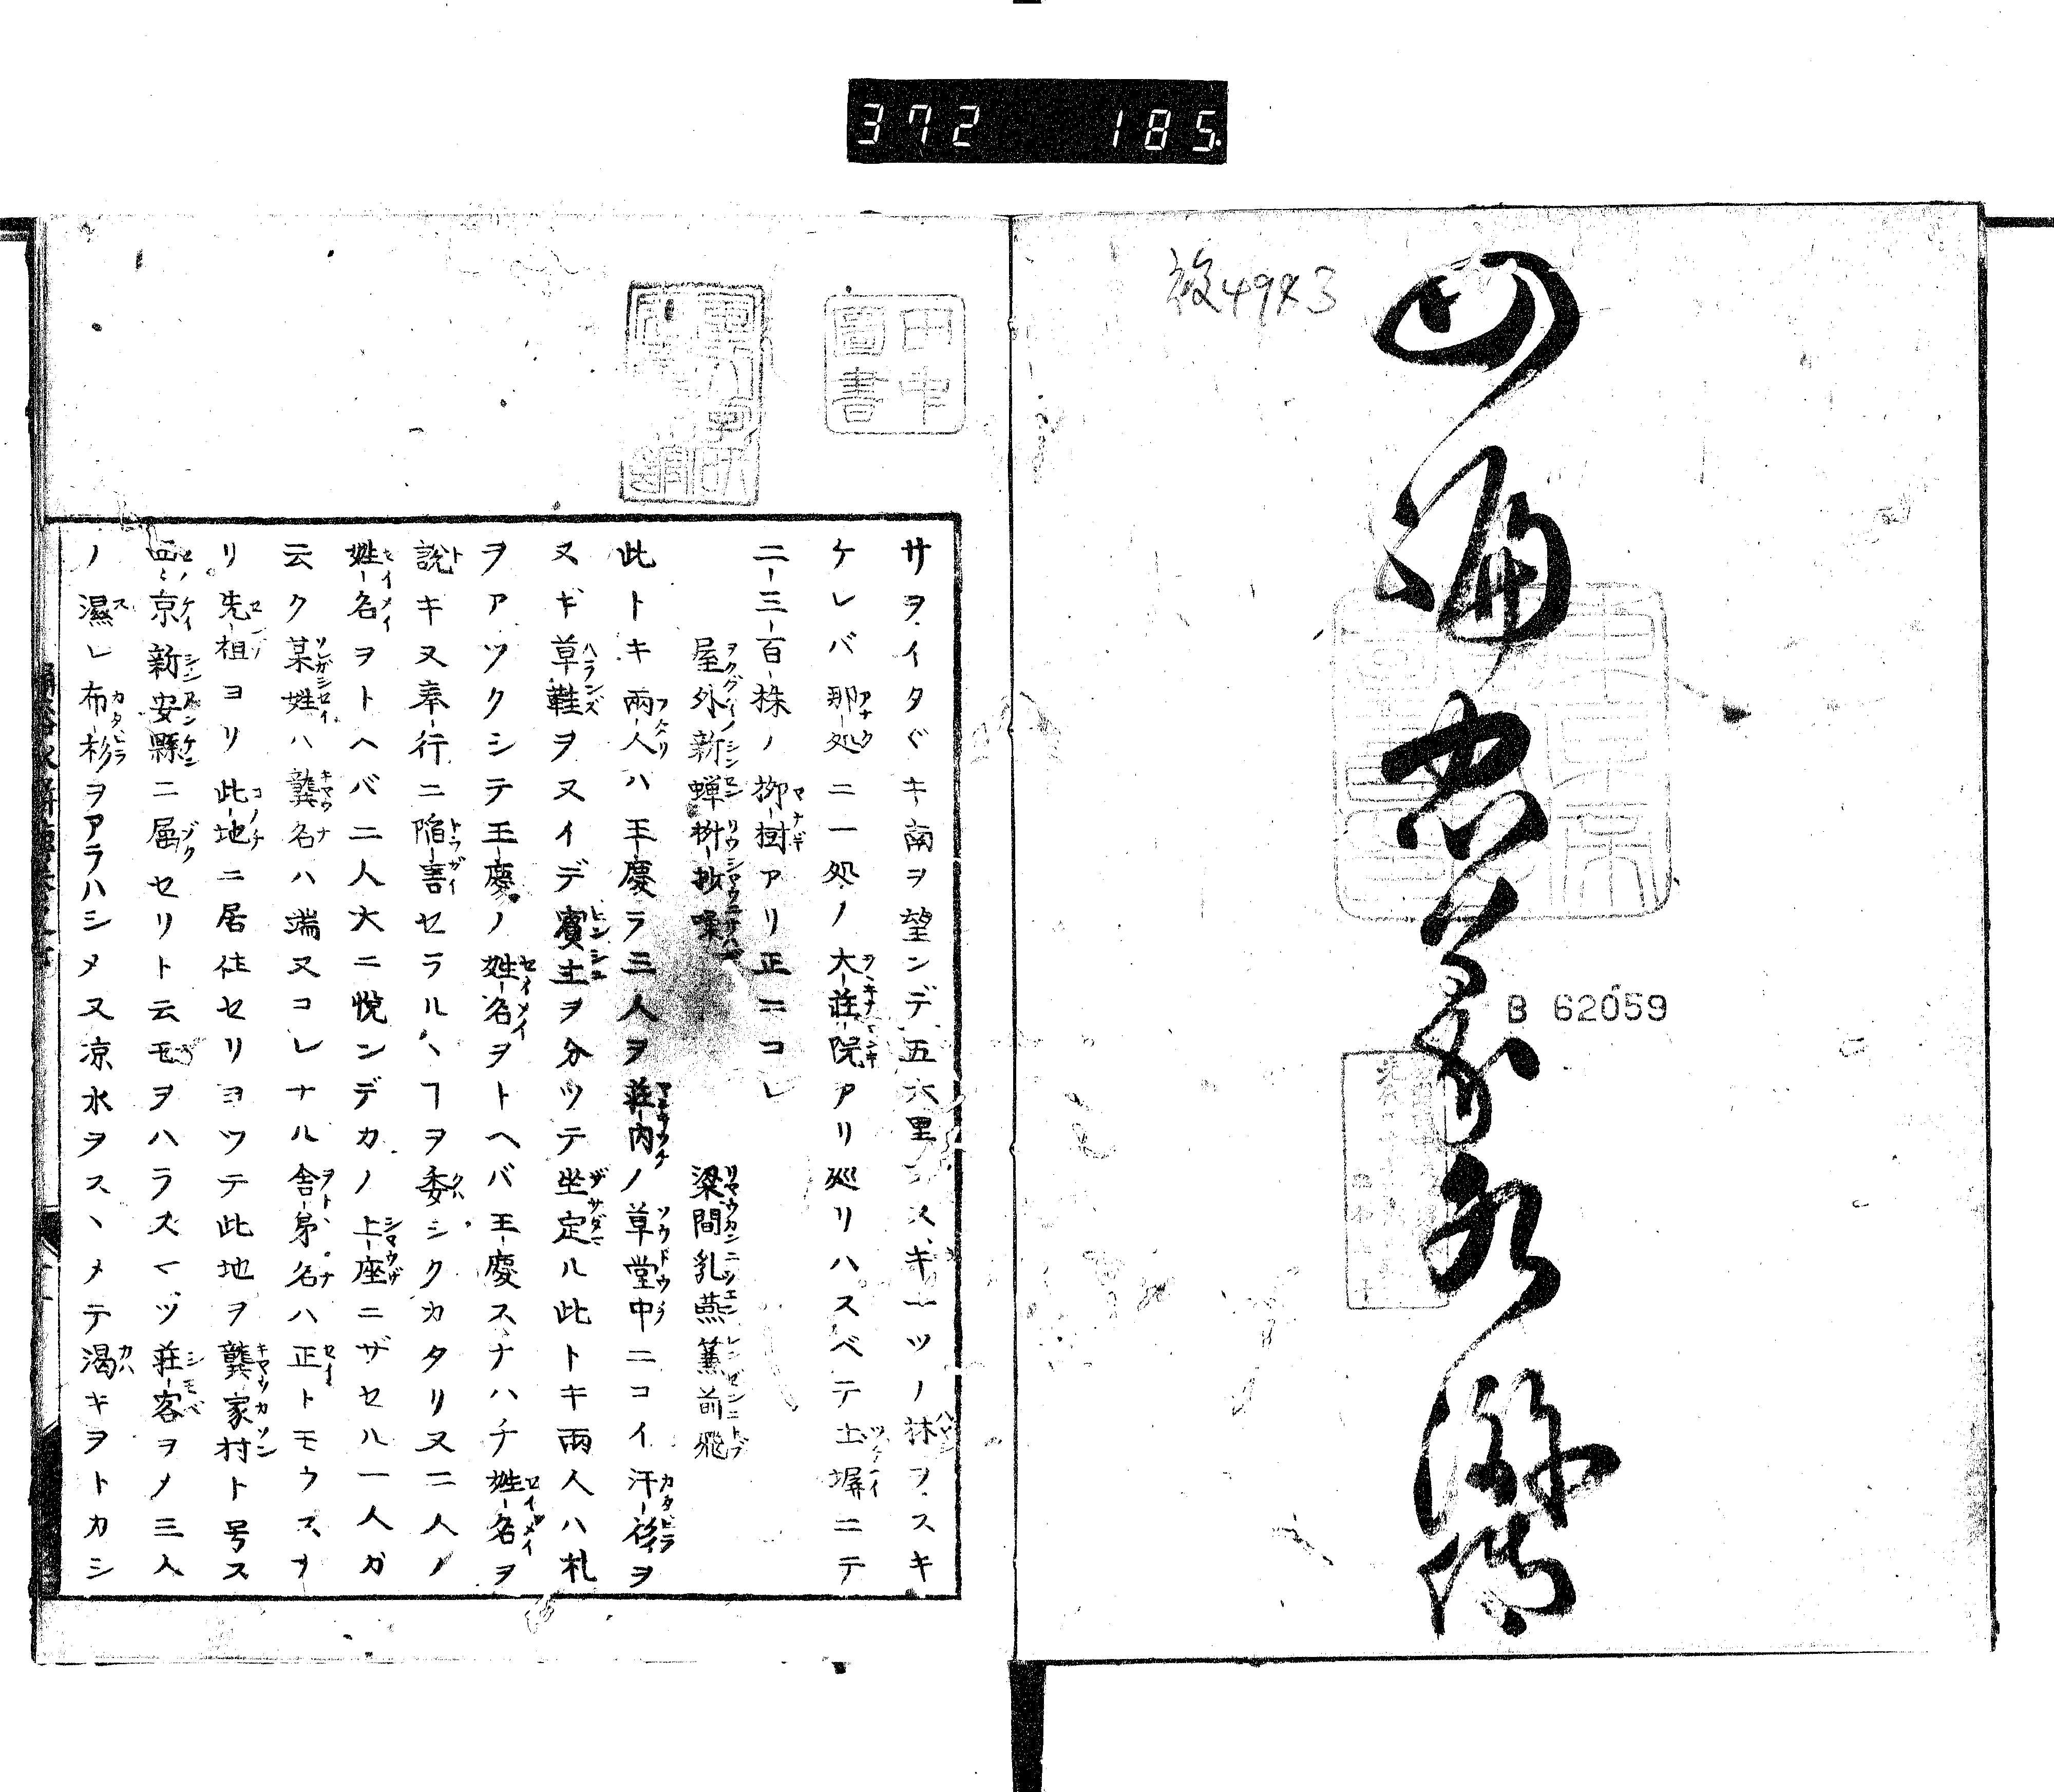 372 185
後4943
通俗忠義水滸傳
B 62059
田中圖書
サヲイタヾキ南ヲ望ンデ五六里ユスギ一ツノ林ヲスキ
ケレバ那処ニ一処ノ大莊院アリ廻リハスベテ土塀ニテ
二三百株ノ栁樹アリ正ニコレ
屋外新蝉栁抄噪 梁間乳燕簾前飛
此トキ兩人ハ王慶ラ三人ヲ莊内ノ草堂中ニコイ汗衫ヲ
ヌギ草鞋ヲヌイデ賓主ヲ分ツテ坐定ル此トキ兩人ハ札
ヲアツクシテ王慶ノ姓名ヲトヘバ王慶スナハチ姓名ヲ
説キ又奉行ニ陥害セラルヽヿヲ委シクカタリ又二人ノ
姓名ヲトヘバ二人大ニ悦ンデカノ上座ニザセル一人ガ
云ク某姓ハ龔名ハ端又コレナル舎弟名ハ正トモウスヲ
リ先祖ヨリ此地ニ居住セリヨツテ此地ヲ龔家村ト号ス
西京新安縣ニ屬セリト云モヲハラズマヅ莊客ヲノ三人
ノ濕レ布衫ヲアラハシメ又凉水ヲスヽメテ渇キヲトカシ